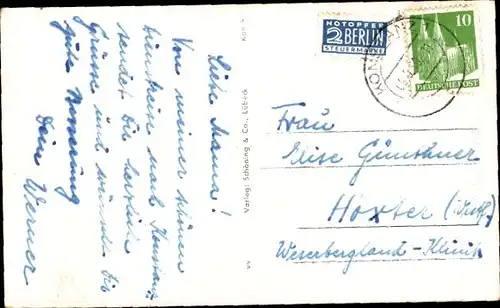 Liebe Mama!
Von meiner schönen
Dienstreise nach Konstanz
sendet Dir herzliche
Grüsse und wünscht Dir
gute Besserung
Dein Werner
Verlag: Schöning & Co., Lübeck
NOTOPFER
2 BERLIN
STEUERMARKE
KONSTANZ
10
DEUTSCHE POST
Frau
Elise Günthner
Höxter (Westf.)
Weserbergland-Klinik